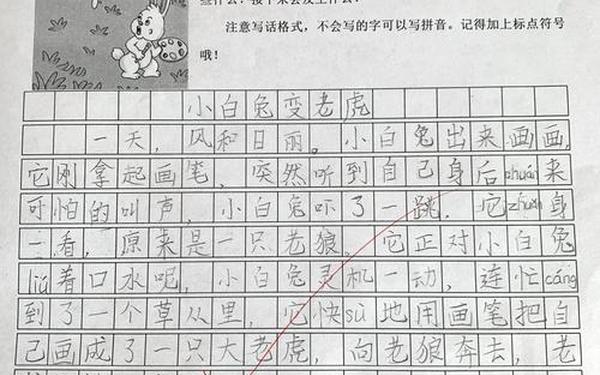 些什么？接下来会发生什么？
注意写话格式，不会写的字可以写拼音。记得加上标点符号
哦！
小白兔变老虎
一天，风和日丽。小白兔出来画画，
它刚拿起画笔，突然听到自己身后chuán来
可怕的叫声，小白兔吓了一跳．它zhuǎn身
一看，原来是一只老狼，它正对小白兔
liú着口水呢，小白兔灵机一动，连忙cáng
到了一个草从里，它快sù地用画笔把自
己画成了一只大老虎，向老狼奔去，老